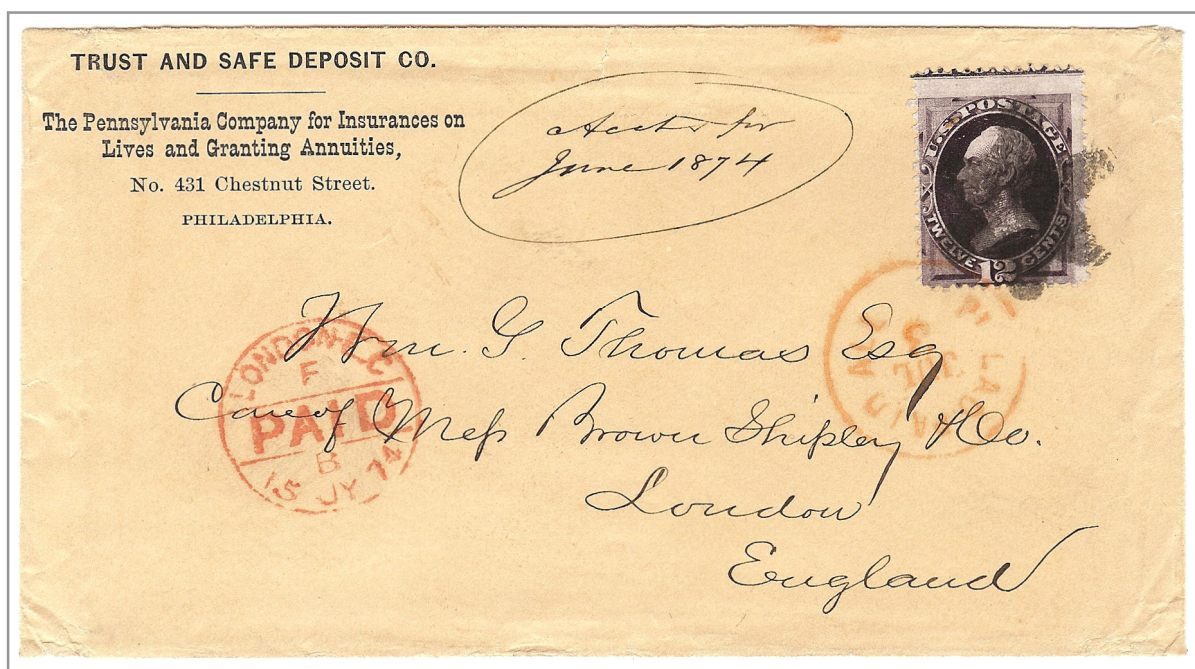 TRUST AND SAFE DEPOSIT CO.
The Pennsylvania Company for Insurances on
Lives and Granting Annuities,
No. 431 Chestnut Street.
PHILADELPHIA.
Accts for
June 1874
U.S. POSTAGE
TWELVE 12 CENTS
Wm. G. Thomas Esq
Care of Mess Brown Shipley & Co.
London
England
LONDON E.C
F
PAID
B
15 JY 74
3
JUL